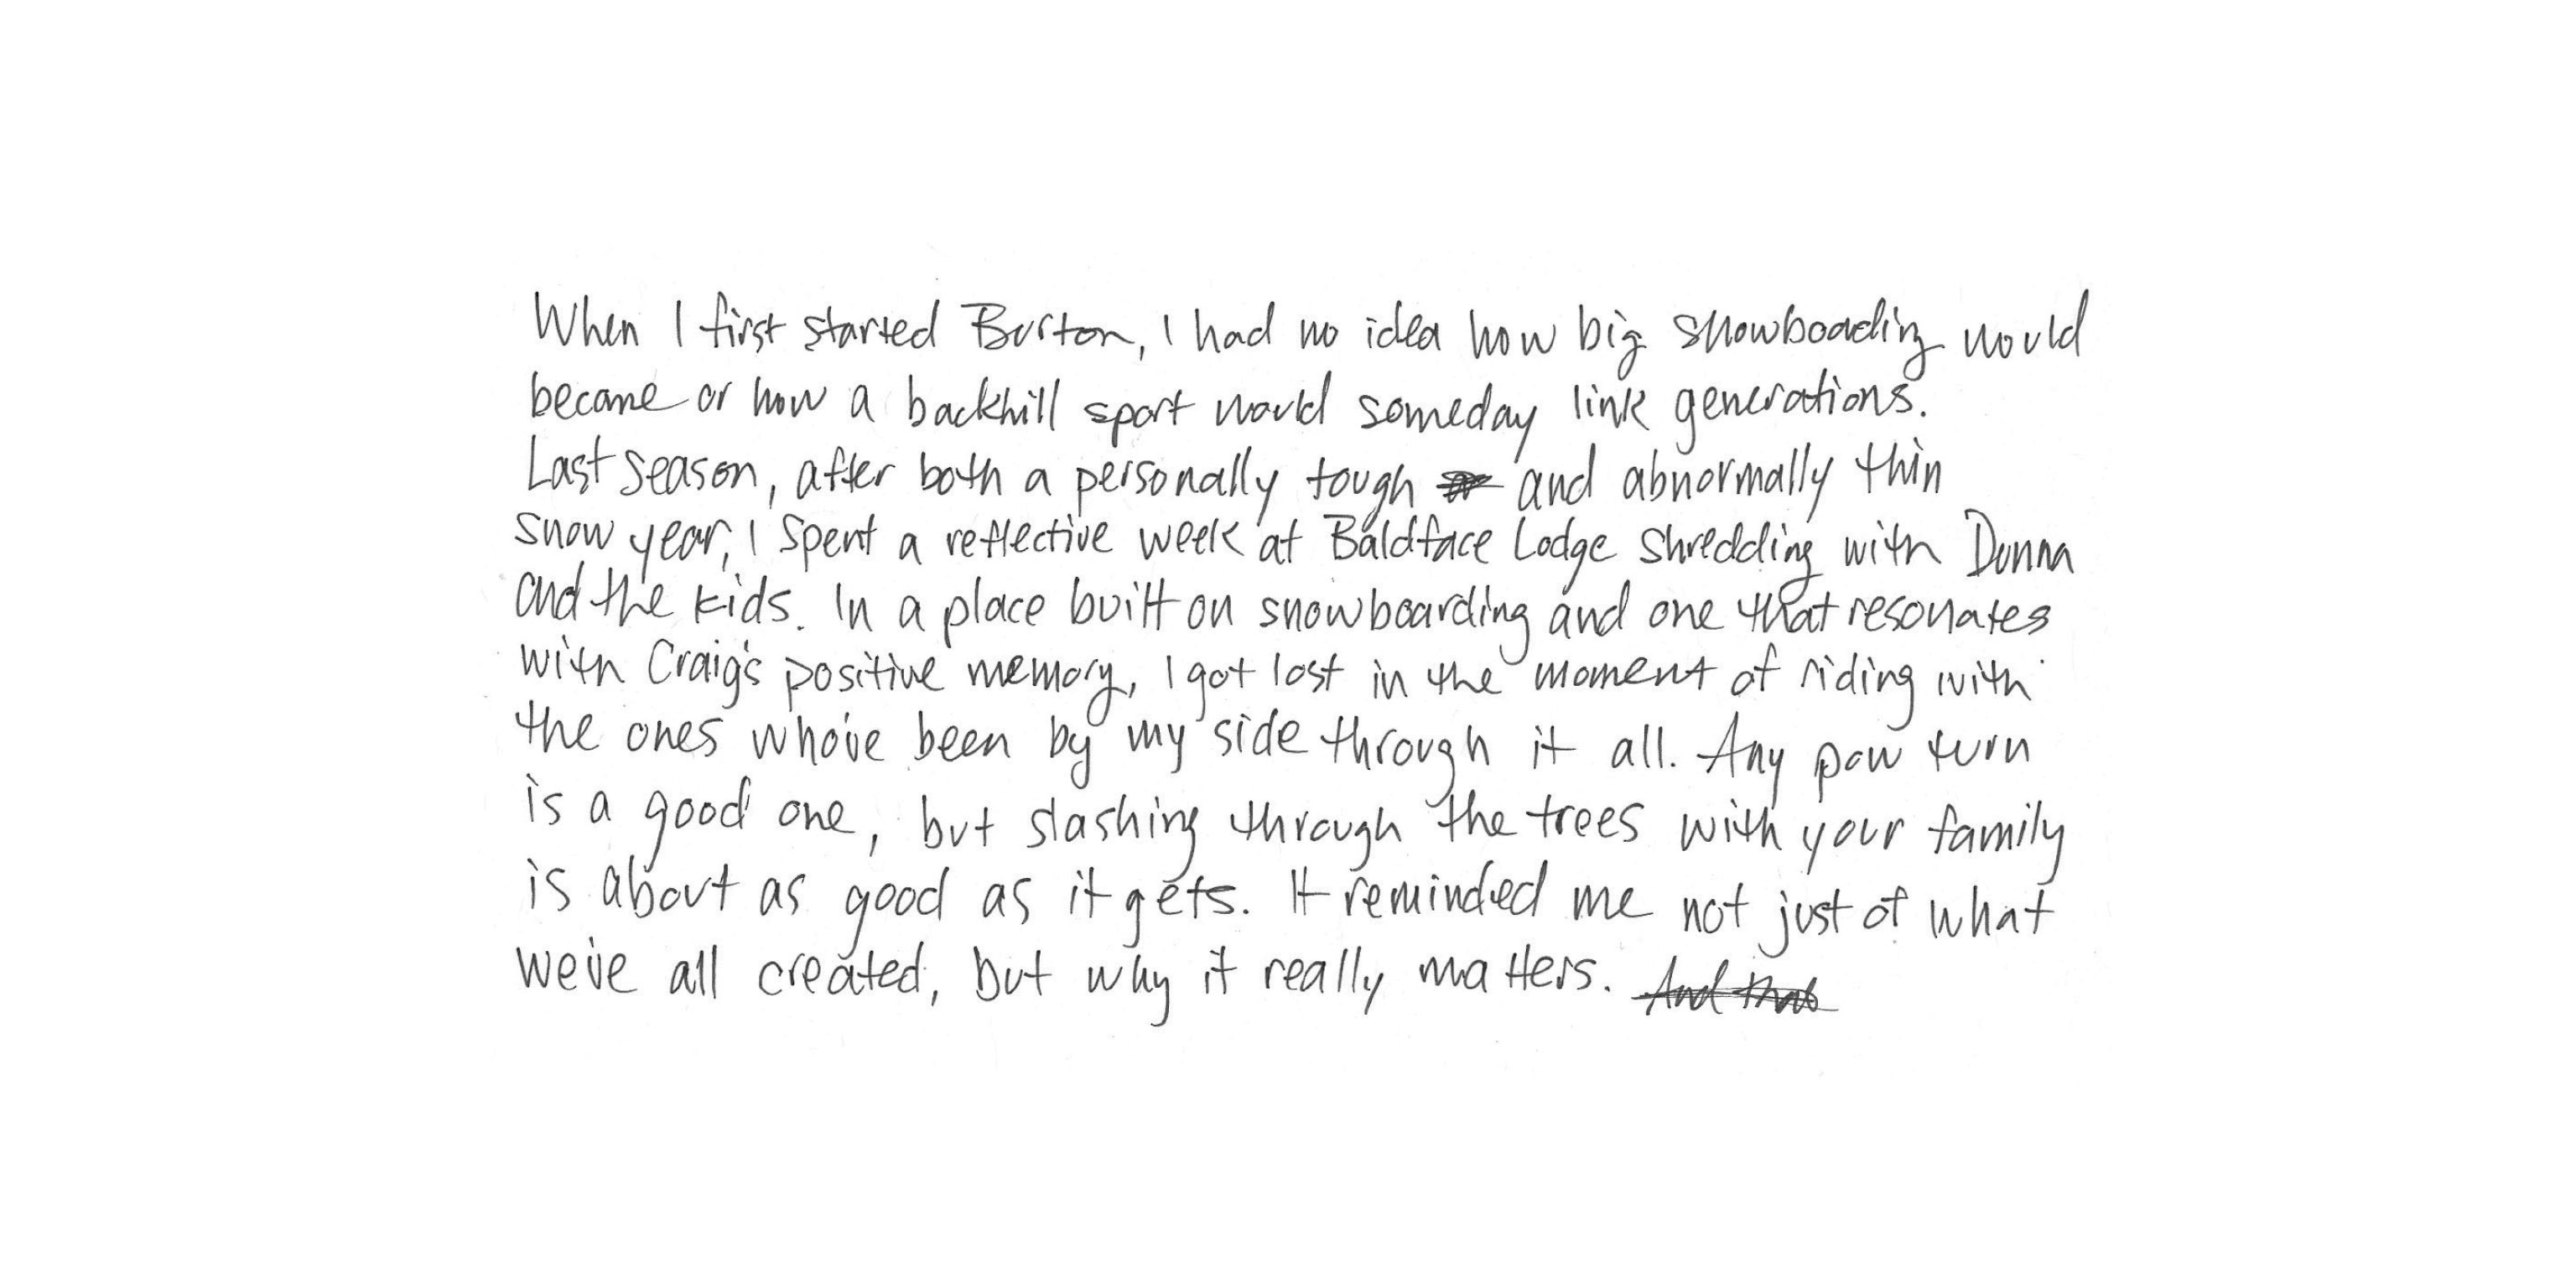 When I first started Burton, I had no idea how big snowboarding would
become or how a backhill sport would someday link generations.
Last season, after both a personally tough and abnormally thin
snow year, I spent a reflective week at Baldface Lodge shredding with Donna
and the kids. In a place built on snowboarding and one that resonates
with Craig's positive memory, I got lost in the moment of riding with
the ones who've been by my side through it all. Any pow turn
is a good one, but slashing through the trees with your family
is about as good as it gets. It reminded me not just of what
we've all created, but why it really matters. And that